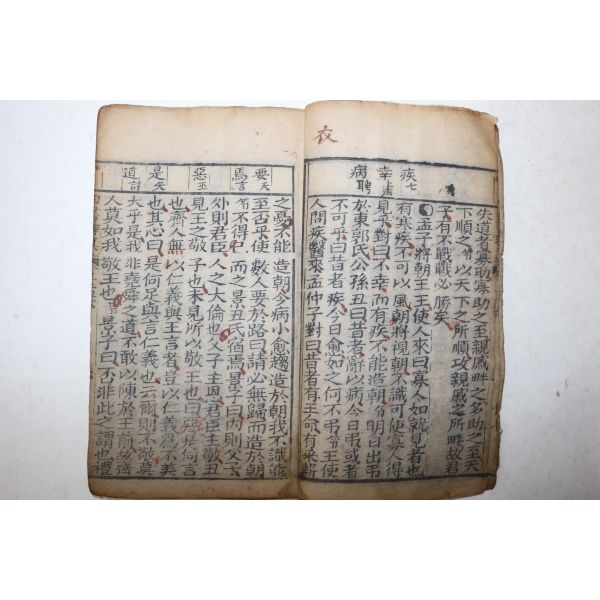 衣
失道者寡助寡助之至親戚畔之多助之至天
下順之以天下之所順攻親戚之所畔故君
子有不戰戰必勝矣
○孟子將朝王王使人來曰寡人如就見者也
疾七
有寒疾不可以風朝將視朝不識可使寡人得
幸
見乎對曰不幸而有疾不能造朝明日出弔
病聘
於東郭氏公孫丑曰昔者辭以病今日弔或者
不可乎曰昔者疾今日愈如之何不弔王使
人問疾醫來孟仲子對曰昔者有王命有采薪
之憂不能造朝今病小愈趨造於朝我不識能
要天
至否乎使數人要於路曰請必無歸而造於朝
焉言
不得已而之景丑氏宿焉景子曰內則父子
外則君臣人之大倫也父子主恩君臣主敬丑
惡
見王之敬子也未見所以敬王也曰惡是何言
也齊人無以仁義與王言者豈以仁義爲不美
是矣
也其心曰是何足與言仁義也云爾則不敬莫
道討
大乎是我非堯舜之道不敢以陳於王前故齊
人莫如我敬王也景子曰否非此之謂也禮